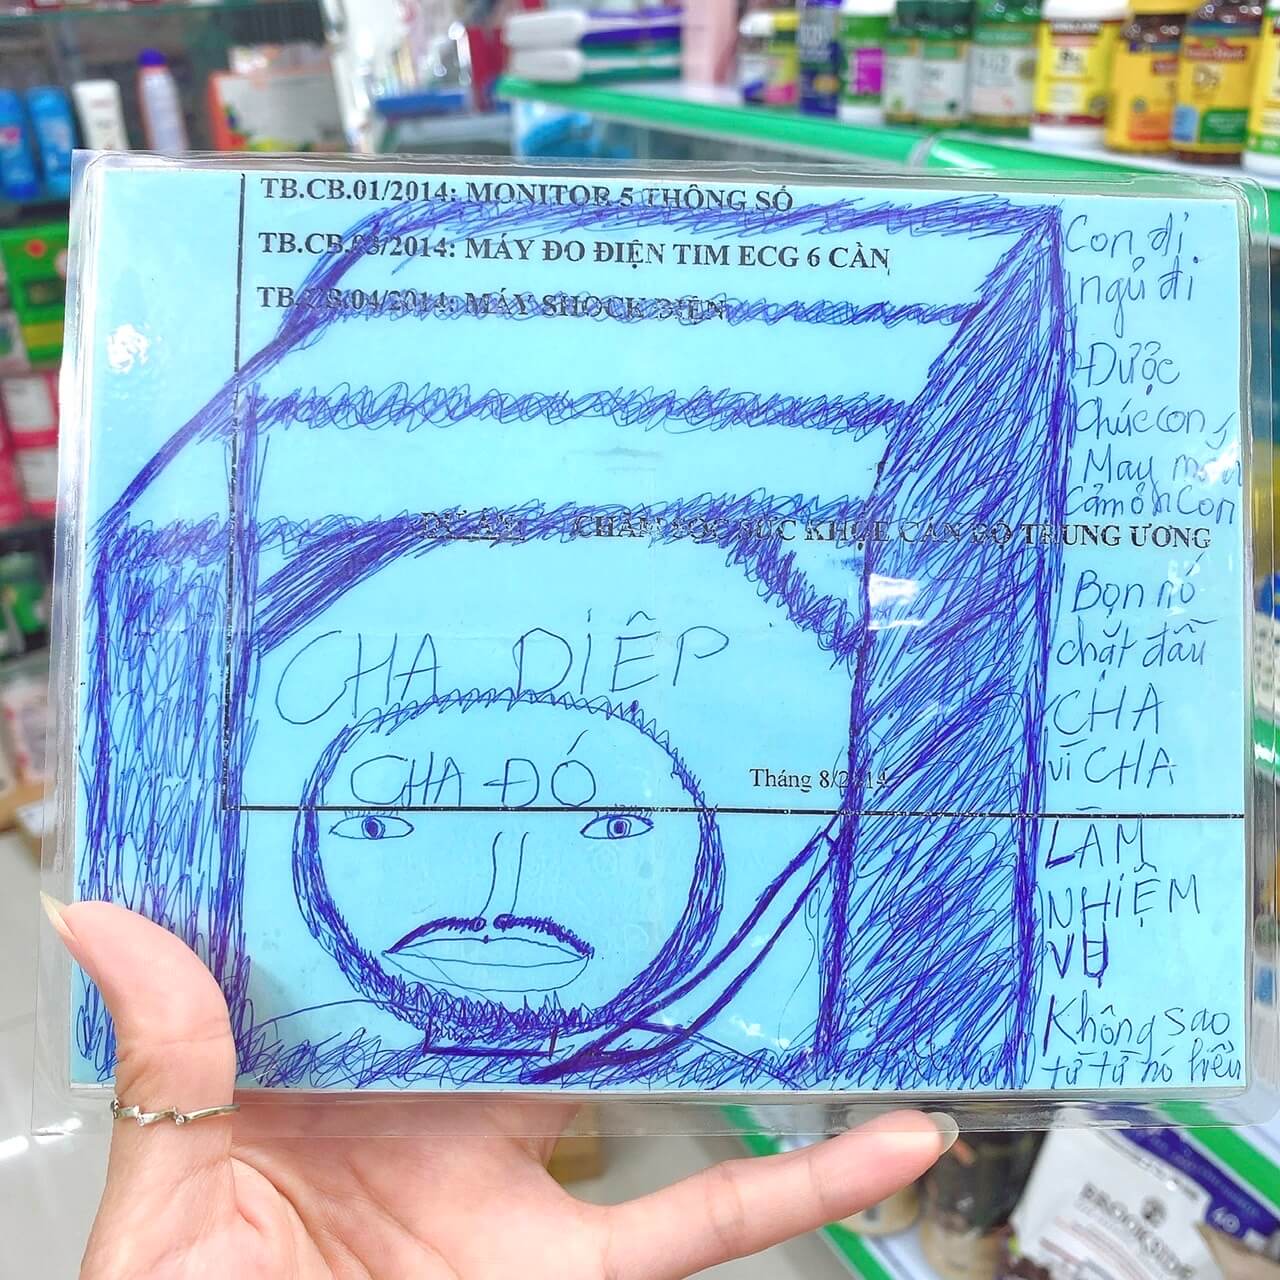 TB.CB.01/2014: MONITOR 5 THÔNG SỐ
TB.CB.03/2014: MÁY ĐO ĐIỆN TIM ECG 6 CẦN
TB.CB.04/2014: MÁY SHOCK ĐIỆN
DỰ ÁN: CHĂM SÓC SỨC KHỎE CÁN BỘ TRUNG ƯƠNG
CHA DIỆP
CHA ĐÓ
Tháng 8/2014
Con đi
ngủ đi
Được
Chúc con
May mắn
Cảm ơn con
Bọn nó
chặt đầu
CHA
vì CHA
LÀM
NHIỆM
VỤ
Không sao
từ từ nó hiểu
BROOKSIDE